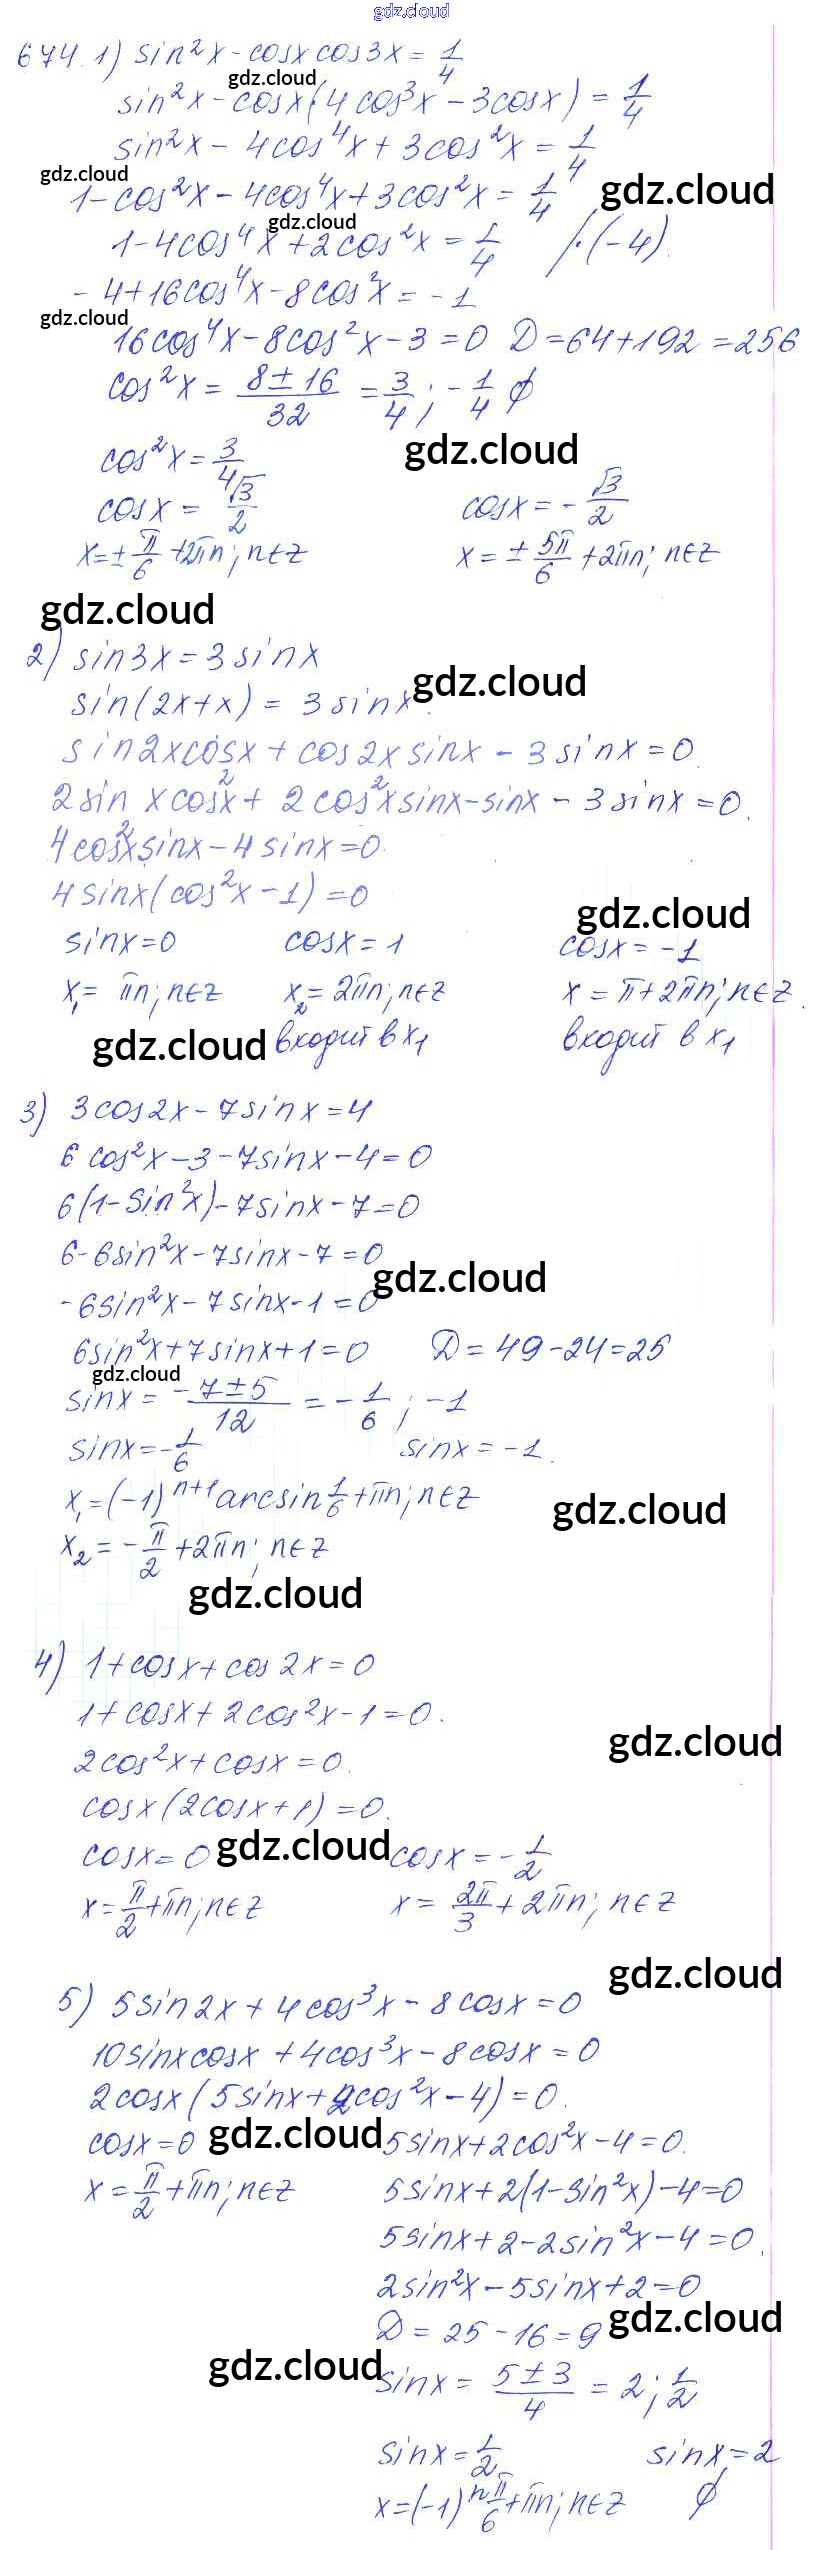 gdz.cloud
674. 1) sin²x - cosx cos3x = 1/4
gdz.cloud
sin²x - cosx(4cos³x - 3cosx) = 1/4
sin²x - 4cos⁴x + 3cos²x = 1/4
gdz.cloud
gdz.cloud
1 - cos²x - 4cos⁴x + 3cos²x = 1/4
gdz.cloud
1 - 4cos⁴x + 2cos²x = 1/4 /·(-4).
- 4 + 16cos⁴x - 8cos²x = -1
gdz.cloud
16cos⁴x - 8cos²x - 3 = 0 D = 64 + 192 = 256
cos²x = (8 ± 16)/32 = 3/4 ; -1/4 ∅
cos²x = 3/4
gdz.cloud
cosx = √3/2 cosx = -√3/2
x = ± π/6 + 2πn; n∈Z x = ± 5π/6 + 2πn; n∈Z
gdz.cloud
2) sin3x = 3sinx
gdz.cloud
sin(2x+x) = 3sinx.
sin2xcosx + cos2xsinx - 3sinx = 0.
2sinxcos²x + 2cos²xsinx - sinx - 3sinx = 0.
4cos²xsinx - 4sinx = 0
4sinx(cos²x - 1) = 0
gdz.cloud
sinx = 0 cosx = 1 cosx = -1
x₁ = πn; n∈Z x₂ = 2πn; n∈Z x = π + 2πn; n∈Z.
gdz.cloud
входит в x₁ входит в x₁
3) 3cos2x - 7sinx = 4
6cos²x - 3 - 7sinx - 4 = 0
6(1 - sin²x) - 7sinx - 7 = 0
6 - 6sin²x - 7sinx - 7 = 0
gdz.cloud
-6sin²x - 7sinx - 1 = 0
6sin²x + 7sinx + 1 = 0 D = 49 - 24 = 25
gdz.cloud
sinx = (-7 ± 5)/12 = -1/6 ; -1
sinx = -1/6 sinx = -1.
x₁ = (-1)ⁿ⁺¹ arcsin 1/6 + πn; n∈Z
gdz.cloud
x₂ = -π/2 + 2πn; n∈Z
gdz.cloud
4) 1 + cosx + cos2x = 0
1 + cosx + 2cos²x - 1 = 0.
gdz.cloud
2cos²x + cosx = 0.
cosx(2cosx + 1) = 0.
gdz.cloud
cosx = 0 cosx = -1/2
x = π/2 + πn; n∈Z x = 2π/3 + 2πn; n∈Z
gdz.cloud
5) 5sin2x + 4cos³x - 8cosx = 0
10sinxcosx + 4cos³x - 8cosx = 0
2cosx(5sinx + 2cos²x - 4) = 0.
gdz.cloud
cosx = 0 5sinx + 2cos²x - 4 = 0.
x = π/2 + πn; n∈Z 5sinx + 2(1 - sin²x) - 4 = 0
5sinx + 2 - 2sin²x - 4 = 0.
2sin²x - 5sinx + 2 = 0
gdz.cloud
D = 25 - 16 = 9
gdz.cloud
sinx = (5 ± 3)/4 = 2; 1/2
sinx = 1/2 sinx = 2
x = (-1)ⁿ π/6 + πn; n∈Z ∅